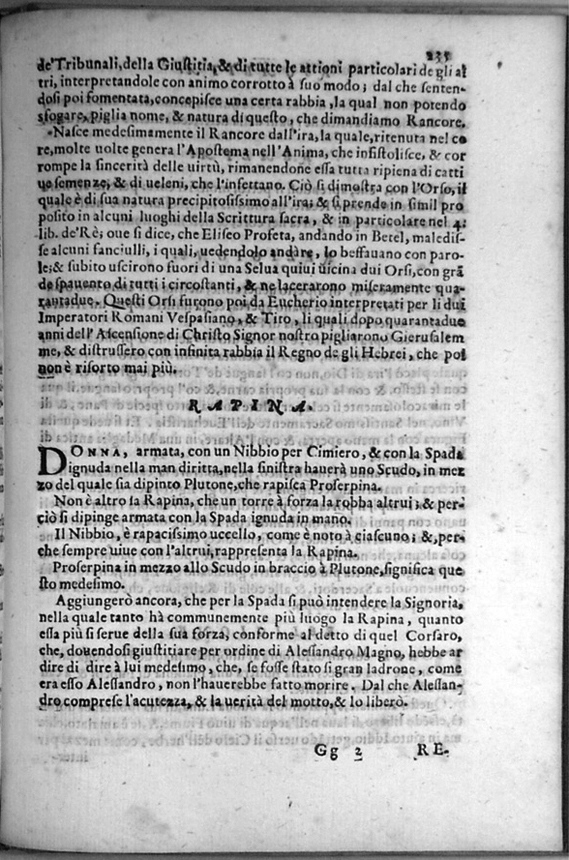 235
de'Tribunali, della Giustitia, & di tutte le attioni particolari de gli al
tri, interpretandole con animo corrotto à suo modo; dal che senten-
dosi poi fomentata, concepisce una certa rabbia, la qual non potendo
sfogare, piglia nome, & natura di questo, che dimandiamo Rancore.
Nasce medesimamente il Rancore dall'ira, la quale, ritenuta nel co
re, molte uolte genera l'Apostema nell'Anima, che infistolisce, & cor
rompe la sincerità delle uirtù, rimanendone essa tutta ripiena di catti
ue semenze, & di ueleni, che l'infettano. Ciò si dimostra con l'Orso, il
quale è di sua natura precipitosissimo all'ira; & si prende in simil pro
posito in alcuni luoghi della Scrittura sacra, & in particolare nel 4.
lib. de'Rè; oue si dice, che Eliseo Profeta, andando in Betel, maledis-
se alcuni fanciulli, i quali, uedendolo andare, lo beffauano con paro-
le; & subito uscirono fuori di una Selua quiui uicina dui Orsi, con grã
de spauento di tutti i circostanti, & ne lacerarono miseramente qua-
rantadue. Questi Orsi furono poi da Eucherio interpretati per li dui
Imperatori Romani Vespasiano, & Tito, li quali dopo quarantadue
anni dell'Ascensione di Christo Signor nostro pigliarono Gierusalem
me, & distrussero con infinita rabbia il Regno de gli Hebrei, che poi
non è risorto mai più.
RAPINA.
DONNA, armata, con un Nibbio per Cimiero, & con la Spada
ignuda nella man diritta, nella sinistra hauerà uno Scudo, in mez
zo del quale sia dipinto Plutone, che rapisca Proserpina.
Non è altro la Rapina, che un torre à forza la robba altrui; & per-
ciò si dipinge armata con la Spada ignuda in mano.
Il Nibbio, è rapacissimo uccello, come è noto à ciascuno; &, per-
che sempre uiue con l'altrui, rappresenta la Rapina.
Proserpina in mezzo allo Scudo in braccio à Plutone, significa que
sto medesimo.
Aggiungerò ancora, che per la Spada si può intendere la Signoria,
nella quale tanto hà communemente più luogo la Rapina, quanto
essa più si serue della sua forza, conforme al detto di quel Corsaro,
che, douendosi giustitiare per ordine di Alessandro Magno, hebbe ar
dire di dire à lui medesimo, che, se fosse stato sì gran ladrone, come
era esso Alessandro, non l'hauerebbe fatto morire. Dal che Alessan-
dro comprese l'acutezza, & la uerità del motto, & lo liberò.
Gg 2 RE-